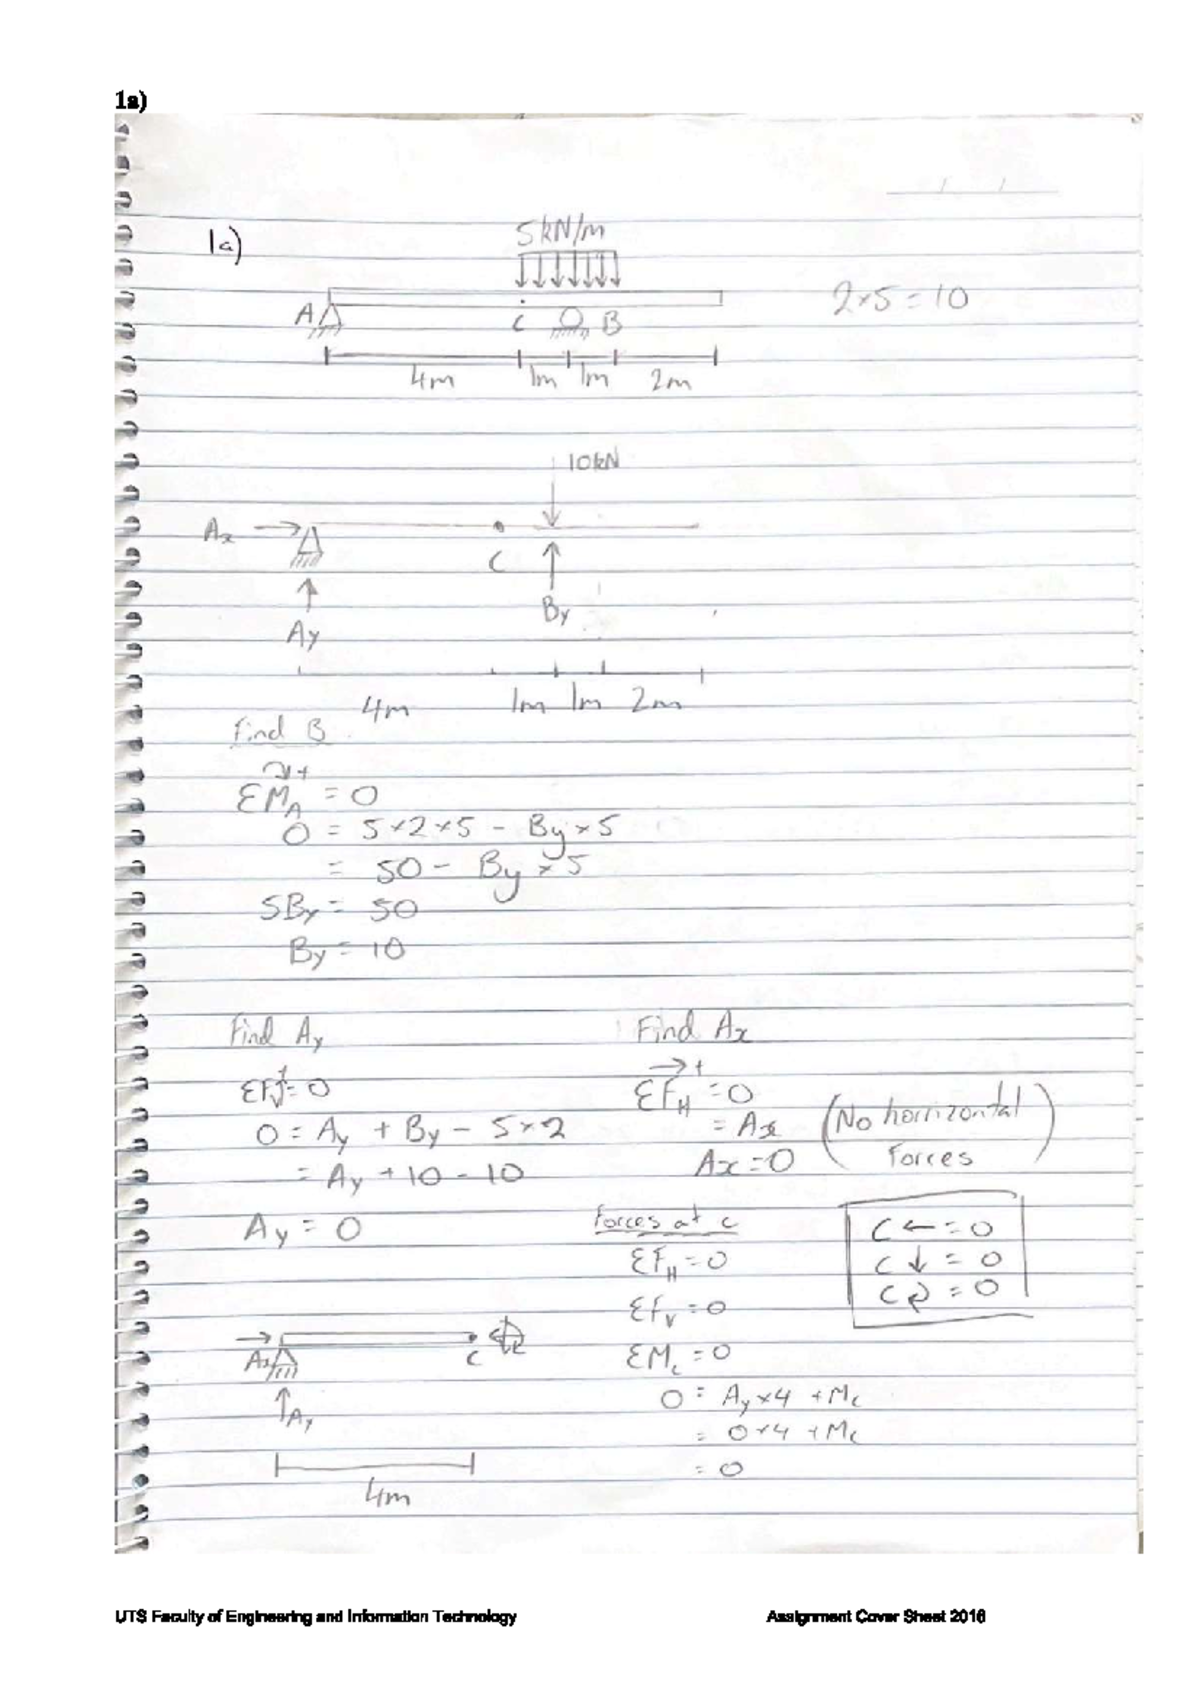 1a)
1a)
5kN/m
2×5=10
A
C
B
4m 1m 1m 2m
10kN
Ax
C
Ay
By
4m 1m 1m 2m
Find B
+
ΣM_A = 0
0 = 5×2×5 - By×5
= 50 - By×5
5By = 50
By = 10
Find Ay
ΣFv = 0
0 = Ay + By - 5×2
= Ay + 10 - 10
Ay = 0
Find Ax
→+
ΣF_H = 0
= Ax
Ax = 0
(No horrizontal
Forces)
Forces at c
ΣF_H = 0
ΣF_V = 0
ΣM_c = 0
0 = Ay×4 + Mc
= 0×4 + Mc
= 0
C ← = 0
C ↓ = 0
C ⤸ = 0
Ax
C
Ay
4m
UTS Faculty of Engineering and Information Technology Assignment Cover Sheet 2016